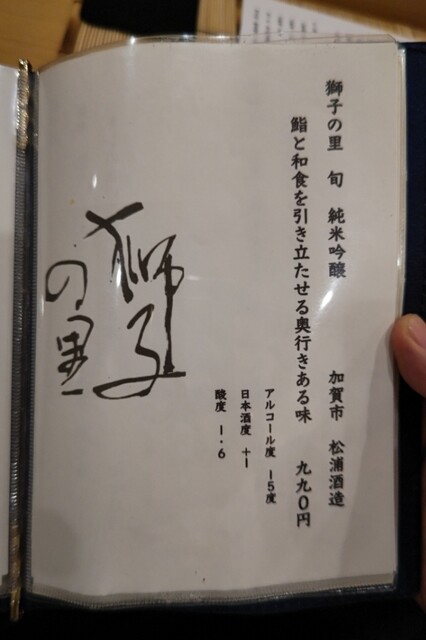 獅子の里　旬　純米吟醸　加賀市　松浦酒造
鮨と和食を引き立たせる奥行きある味　九九〇円
アルコール度　15度
日本酒度　+1
酸度　1・6
獅子
の里